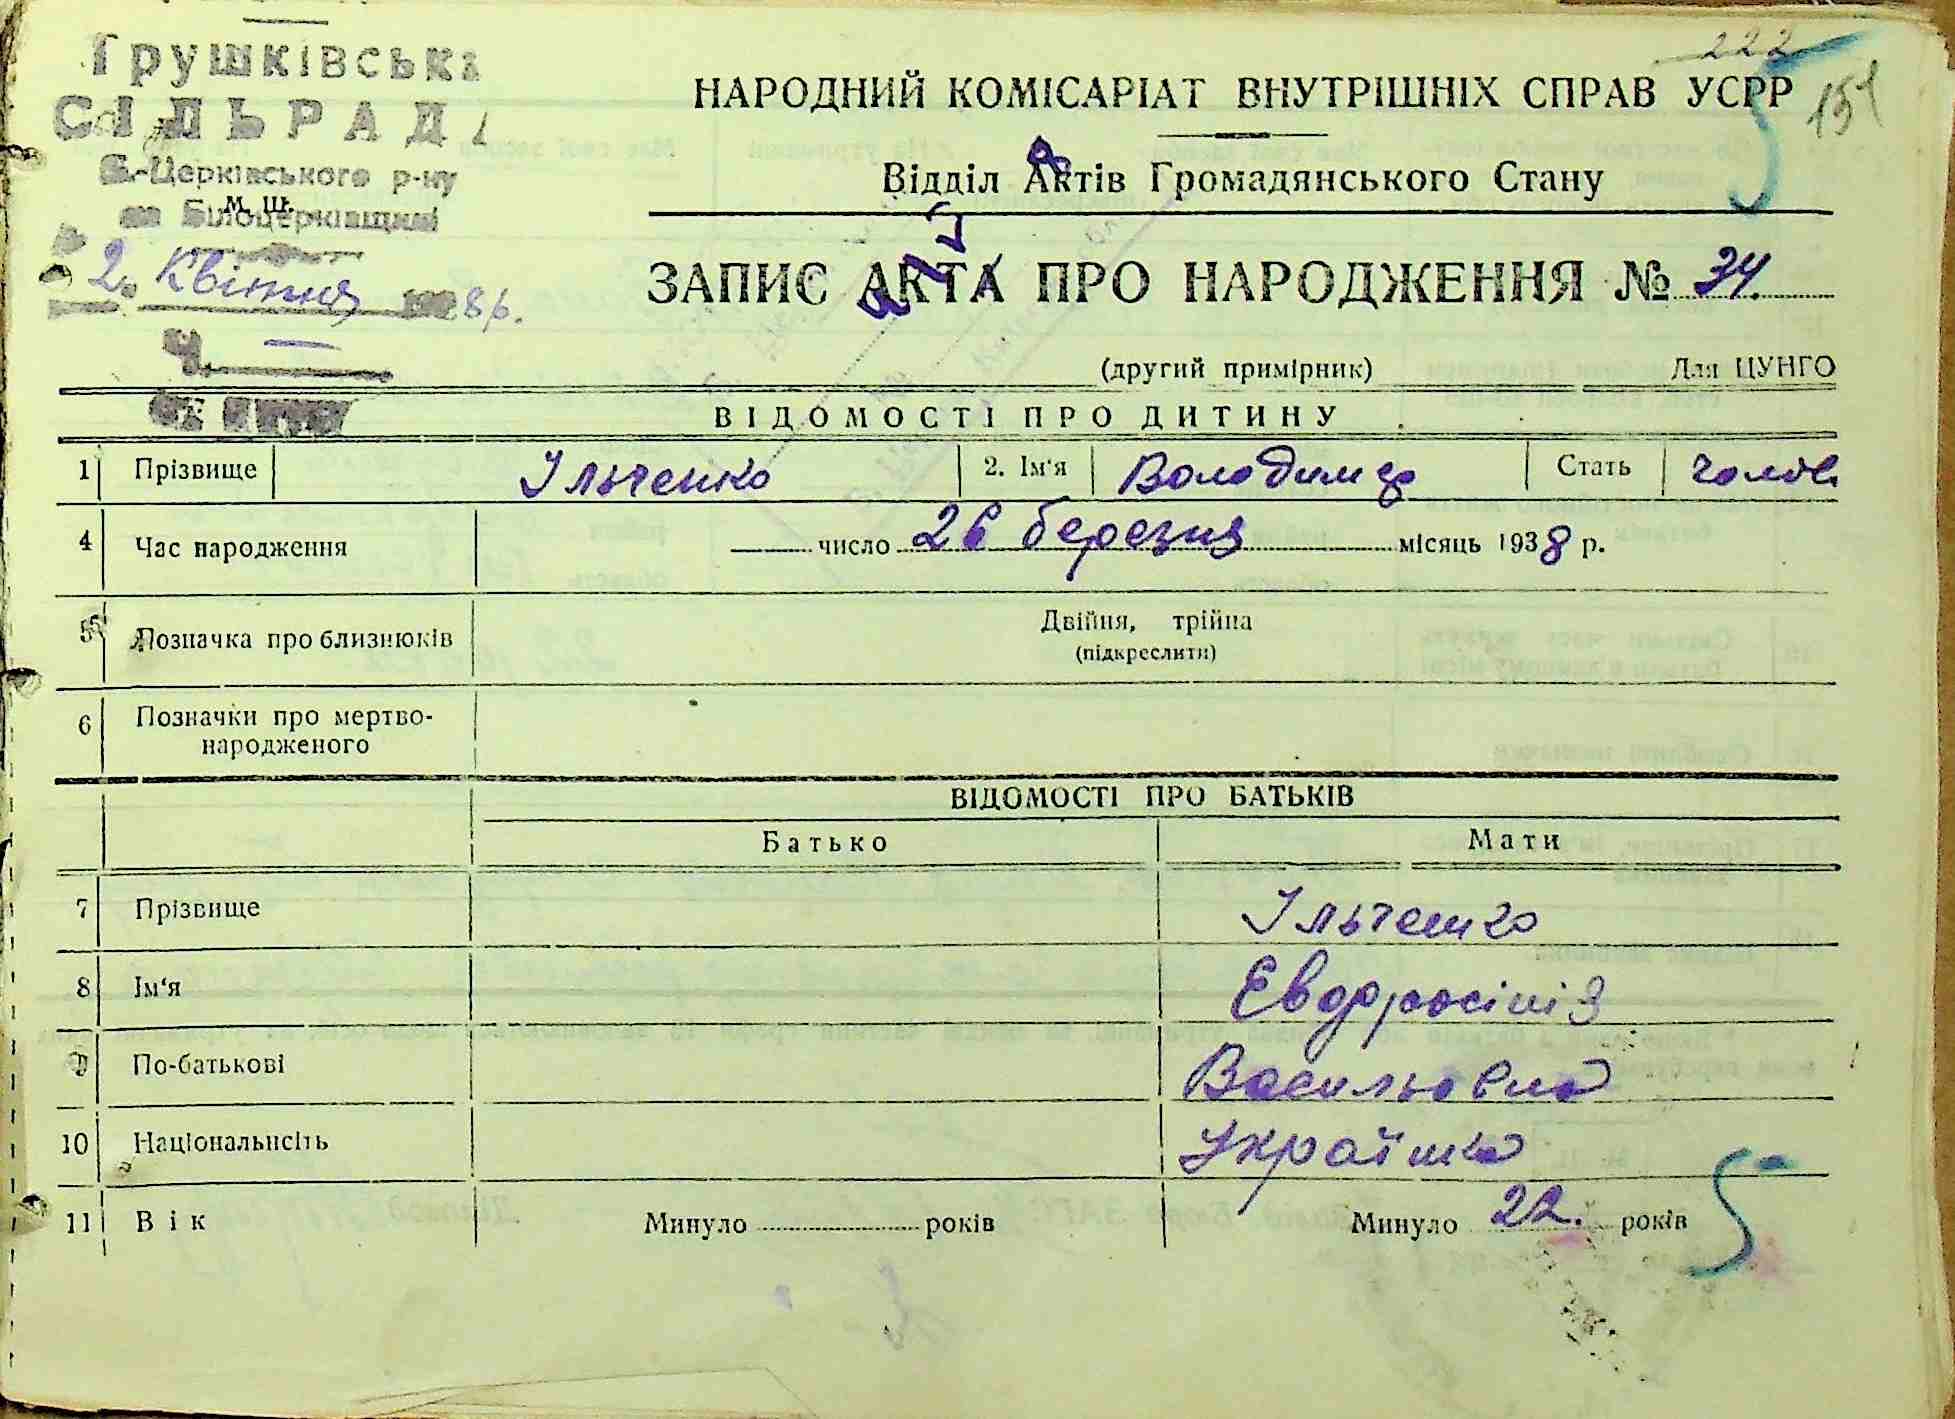 222
151
Грушківська
СІЛЬРАДА
Б.-Церківського р-ну
М. Ш.
на Білоцерківщині
2. Квітня 1938 р.
НАРОДНИЙ КОМІСАРІАТ ВНУТРІШНІХ СПРАВ УСРР
Відділ Актів Громадянського Стану
ЗАПИС АКТА ПРО НАРОДЖЕННЯ № 34.
(другий примірник) Для ЦУНГО
ВІДОМОСТІ ПРО ДИТИНУ
1 Прізвище Ільченко 2. Ім'я Володимир Стать чолов.
4 Час народження число 26 березня місяць 1938 р.
5 Позначка про близнюків Двійня, трійня
(підкреслити)
6 Позначки про мертво-
народженого
ВІДОМОСТІ ПРО БАТЬКІВ
Батько Мати
7 Прізвище Ільченко
8 Ім'я Евфросінія
9 По-батькові Васильовна
10 Національність Українка
11 Вік Минуло років Минуло 22. років
5
5